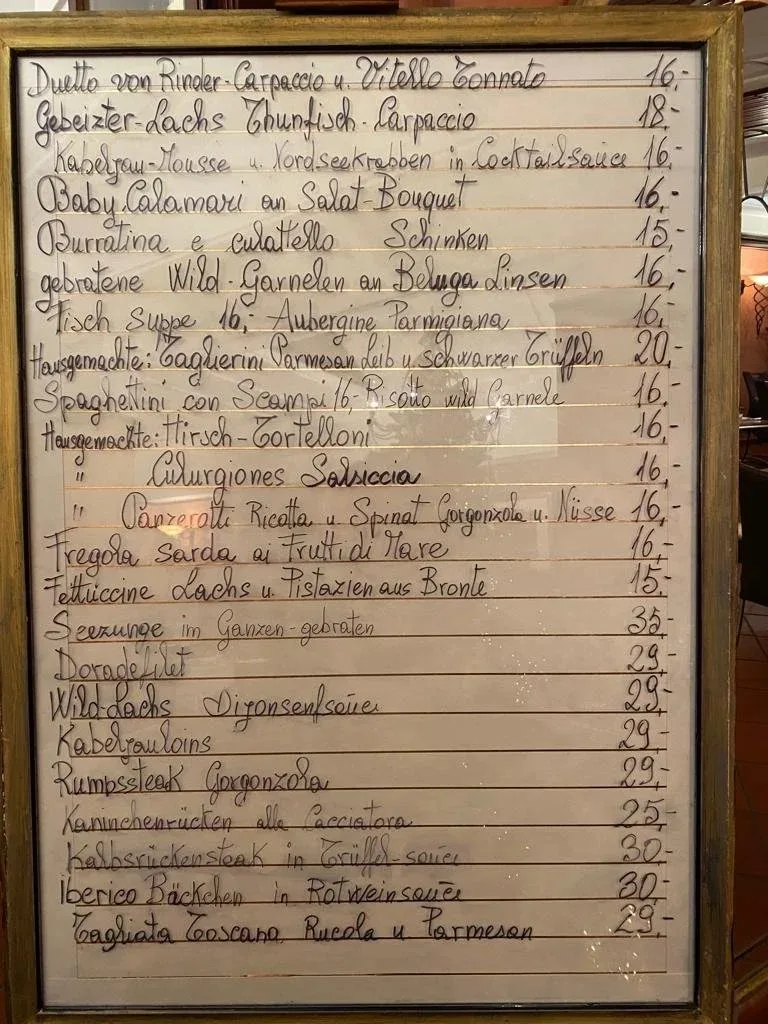 Duetto von Rinder-Carpaccio u. Vitello Tonnato 16,-
Gebeizter-Lachs Thunfisch-Carpaccio 18,-
Kabeljau-Mousse u. Nordseekrabben in Cocktailsauce 16,-
Baby Calamari an Salat-Bouquet 16,-
Burratina e culattello Schinken 15,-
gebratene Wild-Garnelen an Beluga Linsen 16,-
Fisch Suppe 16,- Aubergine Parmigiana 16,-
Hausgemachte: Taglierini Parmesan Leib u. schwarzer Trüffeln 20,-
Spaghettini con Scampi 16,- Risotto wild Garnele 16,-
Hausgemachte: Hirsch-Tortelloni 16,-
" Culurgiones Salsiccia 16,-
" Panzerotti Ricotta u Spinat Gorgonzola u. Nüsse 16,-
Fregola Sarda ai Frutti di Mare 16,-
Fettuccine Lachs u. Pistazien aus Bronte 15,-
Seezunge im Ganzen-gebraten 35,-
Doradefilet 29,-
Wild-Lachs Dijonsenfsauce 29,-
Kabeljauloins 29,-
Rumpssteak Gorgonzola 29,-
Kaninchenrücken alla Cacciatora 25,-
Kalbsrückensteak in Trüffel-sauce 30,-
Iberico Bäckchen in Rotweinsauce 30,-
Tagliata Toscana Rucola u Parmesan 29,-